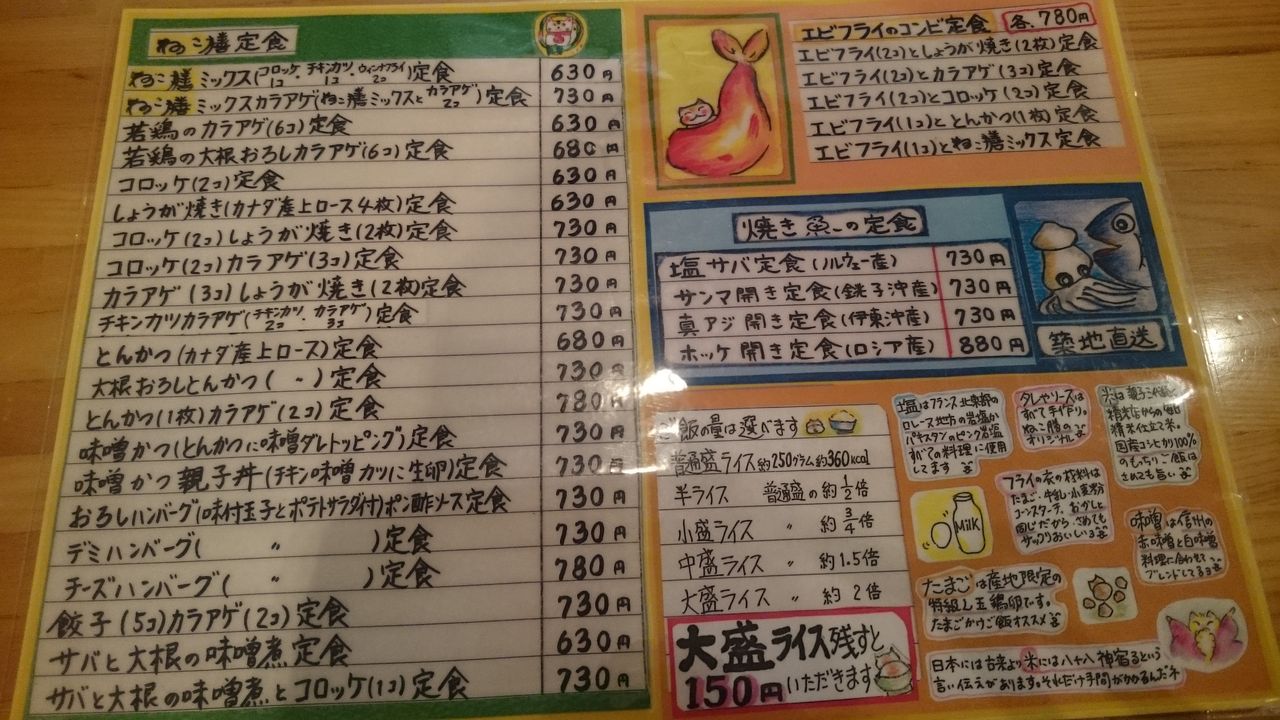 ねこ膳定食
ねこ膳ミックス(コロッケ1コ、チキンカツ1コ、ウィンナフライ2コ)定食 630円
ねこ膳ミックスカラアゲ(ねこ膳ミックスとカラアゲ2コ)定食 730円
若鶏のカラアゲ(6コ)定食 630円
若鶏の大根おろしカラアゲ(6コ)定食 680円
コロッケ(2コ)定食 630円
しょうが焼き(カナダ産上ロース4枚)定食 630円
コロッケ(2コ)しょうが焼き(2枚)定食 730円
コロッケ(2コ)カラアゲ(3コ)定食 730円
カラアゲ(3コ)しょうが焼き(2枚)定食 730円
チキンカツカラアゲ(チキンカツ2コ、カラアゲ3コ)定食 730円
とんかつ(カナダ産上ロース)定食 680円
大根おろしとんかつ( 〃 )定食 730円
とんかつ(1枚)カラアゲ(2コ)定食 780円
味噌かつ(とんかつに味噌ダレトッピング)定食 730円
味噌かつ親子丼(チキン味噌カツに生卵)定食 730円
おろしハンバーグ(味付玉子とポテトサラダ付)ポン酢ソース定食 730円
デミハンバーグ( 〃 )定食 730円
チーズハンバーグ( 〃 )定食 780円
餃子(5コ)カラアゲ(2コ)定食 730円
サバと大根の味噌煮定食 630円
サバと大根の味噌煮とコロッケ(1コ)定食 730円
エビフライのコンビ定食 各.780円
エビフライ(2コ)としょうが焼き(2枚)定食
エビフライ(2コ)とカラアゲ(3コ)定食
エビフライ(2コ)とコロッケ(2コ)定食
エビフライ(1コ)ととんかつ(1枚)定食
エビフライ(1コ)とねこ膳ミックス定食
焼き魚〜の定食
塩サバ定食(ノルウェー産) 730円
サンマ開き定食(銚子沖産) 730円
真アジ開き定食(伊東沖産) 730円
ホッケ開き定食(ロシア産) 880円
築地直送
ご飯の量は選べます
普通盛ライス約250グラム約360kcal
半ライス 普通盛の約1/2倍
小盛ライス 〃 約3/4倍
中盛ライス 〃 約1.5倍
大盛ライス 〃 約2倍
大盛ライス残すと
150円いただきます
塩はフランス北東部の
ロレーヌ地方の岩塩か
パキスタンのピンク岩塩
すべての料理に使用
してます
タレやソースは
すべて手作り。
ねこ膳の
オリジナル
精米仕立て米。
国産コシヒカリ100%
のもっちりご飯は
さめても旨い
フライの衣の材料は
たまご・牛乳・小麦粉
コーンスターチ、おかしと
同じだから、さめても
サックリおいしいヨ
MILK
味噌は信州の
赤味噌と白味噌
料理に合わせて
ブレンドしてるヨ
たまごは産地限定の
特級L玉鶏卵です。
たまごかけご飯オススメ
日本には古来より米には八十八神宿るという
言い伝えがあります。それだけ手間がかかるんだネ